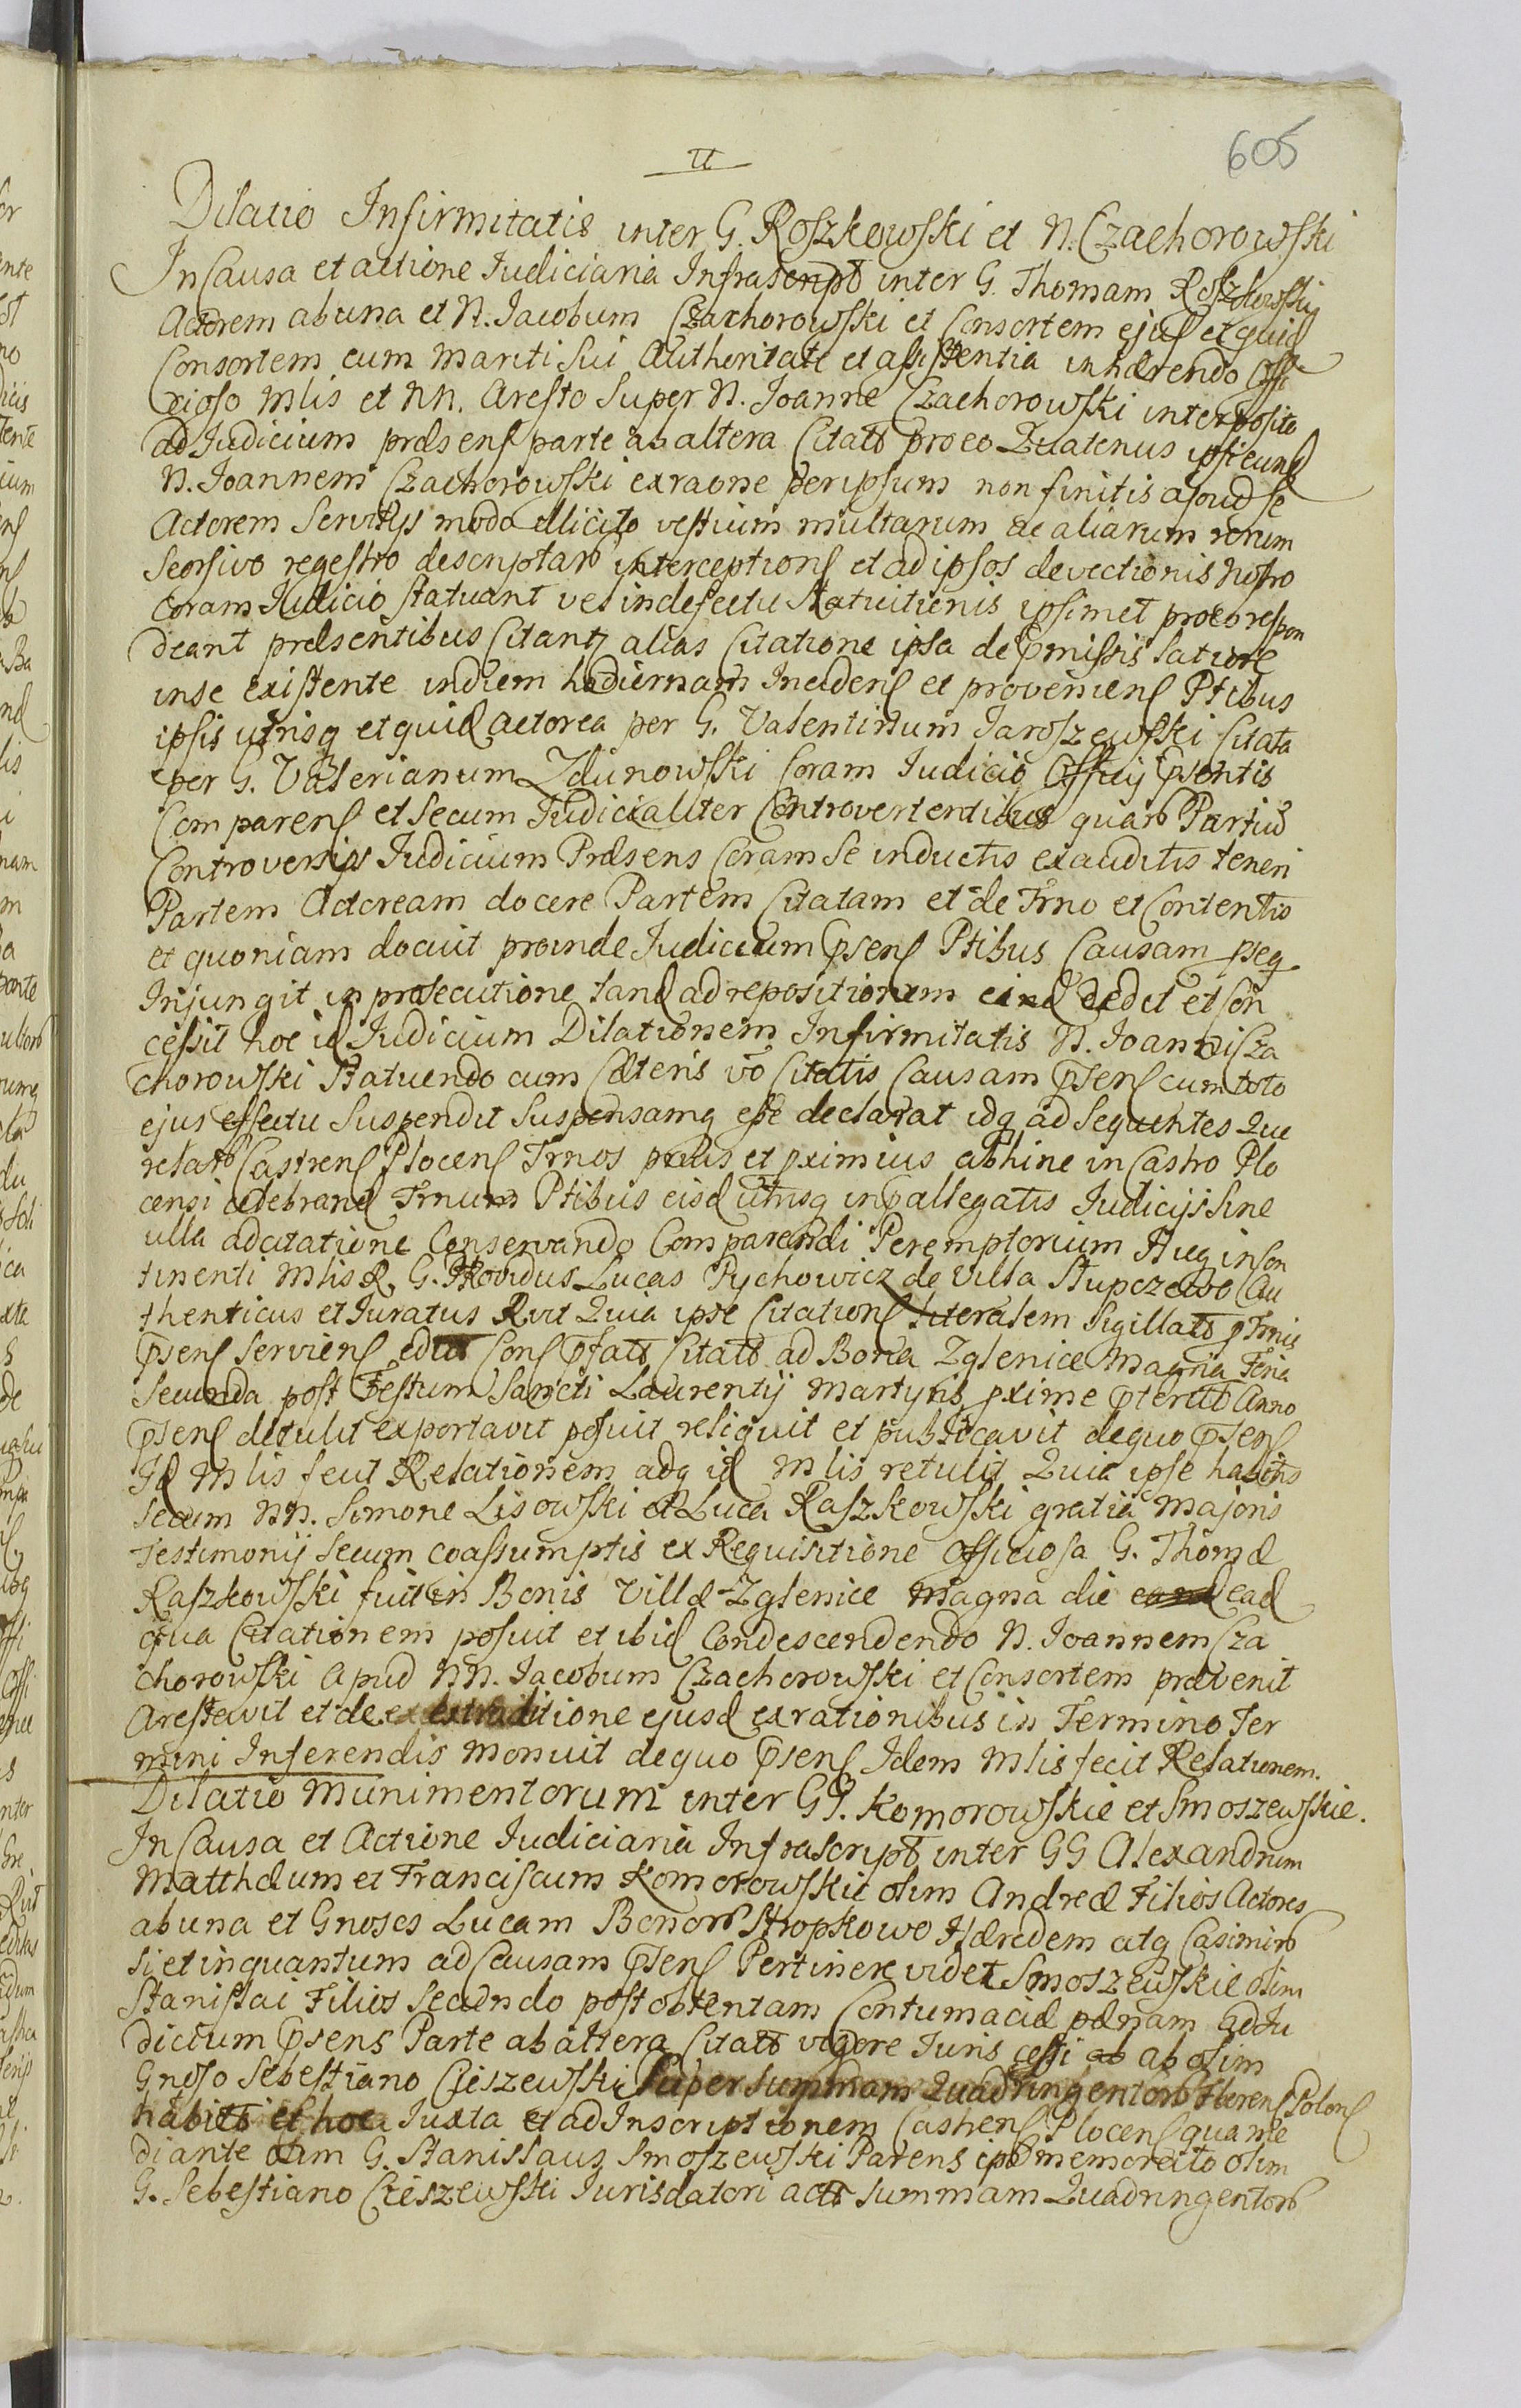 605
II
Dilatio Infirmitatis inter G. Roszkowski et N. Czachorowski
In Causa et actione Judiciaria Infrascript inter G. Thomam Roszkowski
Actorem ab una et N. Jacobum Czachorowski et Consortem ejus et quid
Consortem cum mariti sui Authoritate et assistentia inhærendo Offi
cioso Mlis et NN. Aresto Super N. Joanne Czachorowski interposito
ad Judicium præsens parte ab altera Citat pro eo Quatenus ipsi eund
N. Joannem Czachorowski ex raone per ipsum non finitis apud se
Actorem Servitys modo illicito vestium multarum ac aliarum rerum
Seorsivo regestro descriptar interceptions et ad ipsos devectionis
Coram Judicio statuant vel in defectu Statuitionis ipsimet pro eo respon
deant præsentibus Citant alias Citatione ipsa de pmissis latiore
in se existente in diem hodiernam Incidens et proveniens Ptibus
ipsis utrisq et quid actorea per G. Valentinum Jaroszewski Citata
per G. Valerianum Zdunowski Coram Judicio Officy psentis
Comparens et secum Judicialiter Controvertentibus quar Partiu
Controversys Judicium Præsens Coram Se inductis exauditis teneri
Partem Actoream docere Partem Citatam et de Trno et Contentis
et quoniam docuit proinde Judicium psens Ptibus Causam pseq
Injungit in prosecutione tand ad repositionem eind dedit et Con
cessit hoc id Judicium Dilationem Infirmitatis N. Joanni Cza
chorowski Statuendo cum Cæteris vo Citatis Causam psens cum toto
ejus effectu Suspendit suspensamq esse declarat idq ad Sequentes Que
relar Castrens Plocens Trnos prius et pximius abhinc in Castro Plo
censi celebrand Trnum Ptibus eisd utrisq in pallegatis Judicijs Sine
ulla adcitatione Conservando Comparendi Peremptorium Huq in Con
tinenti Mlis R. G. Providus Lucas Pychowicz de Villa Stupczewo Au
thenticus et Juratus Rvit Quia ipse Citations literalem Sigillat p Trnis
psens serviens edit Cons pfat Citat ad Bona Zglenice Magna Feria
Secunda post Festum Sancti Laurentij Martyris pxime pterito Anno
psens detulit exportavit posuit reliquit et publicavit de quo psens
Id Mlis fecit Relationem adq id Mlis retulit Quia ipse habitis
secum NN. Simone Lisowski et Luca Raszkowski gratia majoris
Testimonij secum coassumptis ex Requisitione Officiosa G. Thomæ
Raszkowski fuit in Bonis Villæ Zglenice Magna die ead
qua Citationem posuit et ibid Condescendendo N. Joannem Cza
chorowski apud NN. Jacobum Czachorowski et Consortem prævenit
Arestavit et de extraditione ejusd ex rationibus in Termino Ter
mini Inferendis monuit de quo psens Idem Mlis fecit Relationem.
Dilatio Munimentorum inter GG. Komorowskie et Smoszewskie.
In Causa et Actione Judiciaria Infrascript inter GG Alexandrum
Matthæum et Franciscum Komorowskie olim Andreæ Filios Actores
ab una et Gnosos Lucam Bonor Stropkowo Hæredem atq Casimir
si et in quantum ad Causam psens Pertinere videt Smoszewskie olim
Stanislai Filios secundo post obtentam Contumaciæ pænam ad Ju
dicium psens Parte ab altera Citat vigore Juris cessi ab ab olim
Gnoso Sebestiano Cieszewski Super Summam Quadringentor Floren Polon
habiti et hoc Juxta et ad Inscriptionem Castrens Plocens qua me
diante olim G. Stanislaus Smoszewski Parens ips memorato olim
G. Sebestiano Cieszewski Jurisdatori act Summam Quadringentor